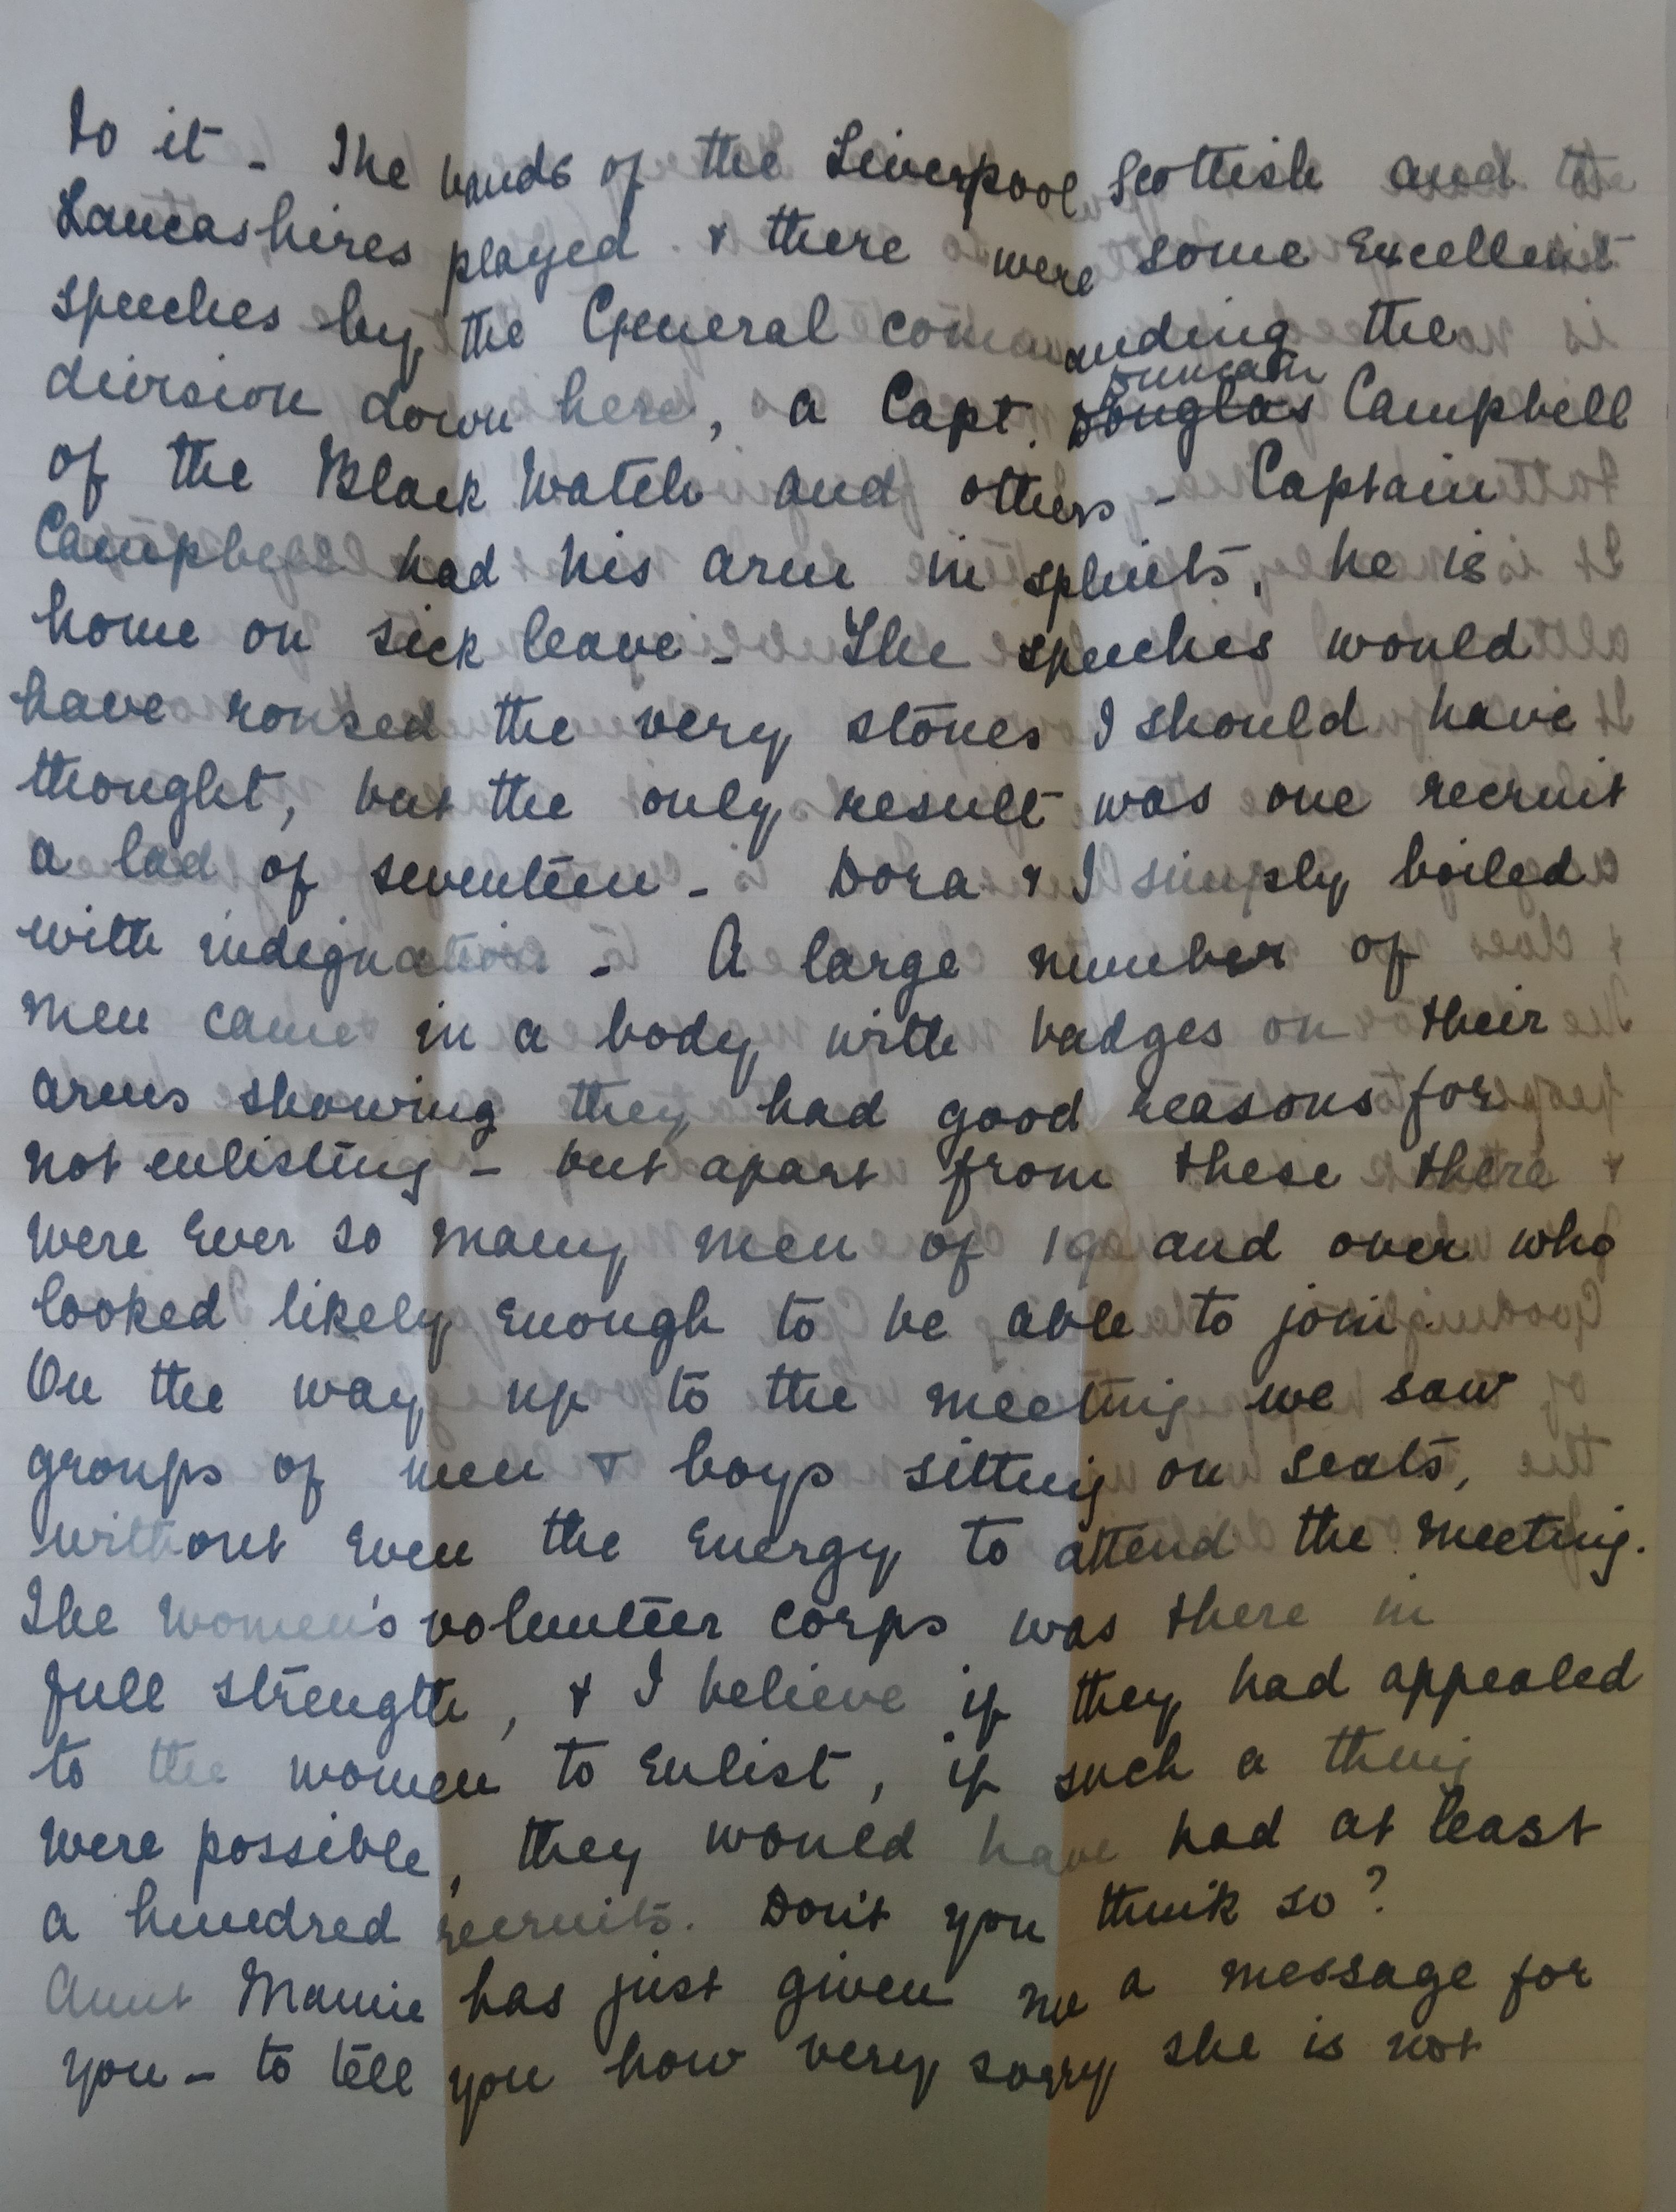 to it - The bands of the Liverpool Scottish and the
Lancashires played. & there were some excellent
speeches by the General commanding the
division down here, a Capt. Douglas Duncan Campbell
of the Black Watch and others - Captain
Campbell had his arm in splints, he is
home on sick leave - The speeches would
have roused the very stones I should have
thought, but the only result was one recruit
a lad of seventeen - Dora & I simply boiled
with indignation - A large number of
men came in a body with badges on their
arms showing they had good reasons for
not enlisting - but apart from these there
were ever so many men of 19 and over who
looked likely enough to be able to join.
On the way up to the meeting we saw
groups of men & boys sitting on seats,
without even the energy to attend the meeting.
The Women's volunteer corps was there in
full strength, & I believe if they had appealed
to the women to enlist, if such a thing
were possible, they would have had at least
a hundred recruits. Don't you think so?
Aunt Mamie has just given me a message for
you - to tell you how very sorry she is not